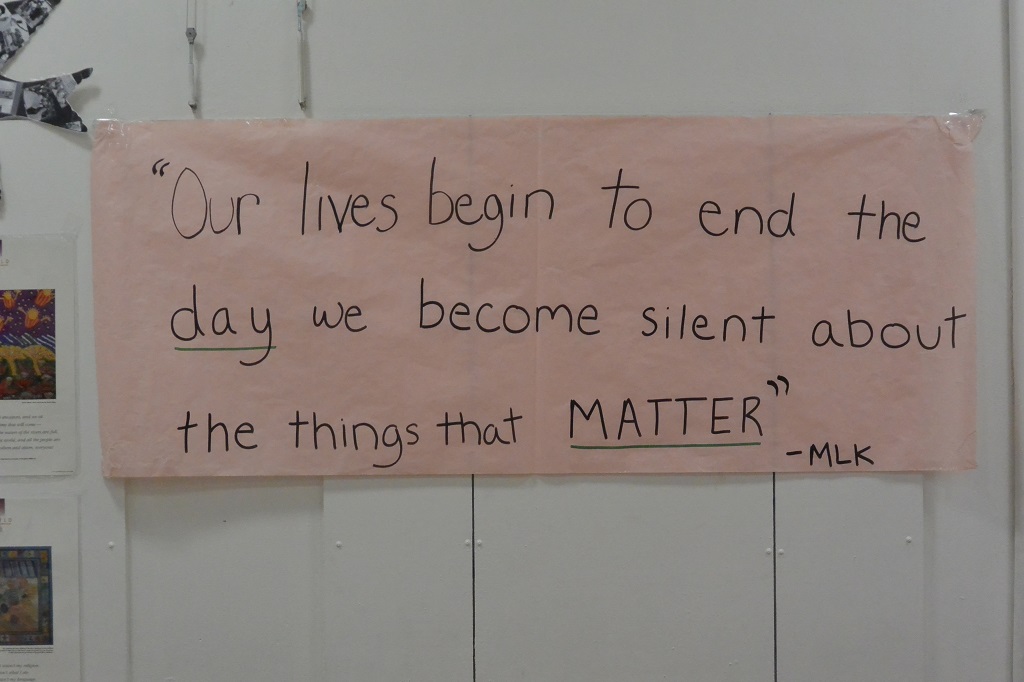 “Our lives begin to end the
day we become silent about
the things that MATTER”
-MLK